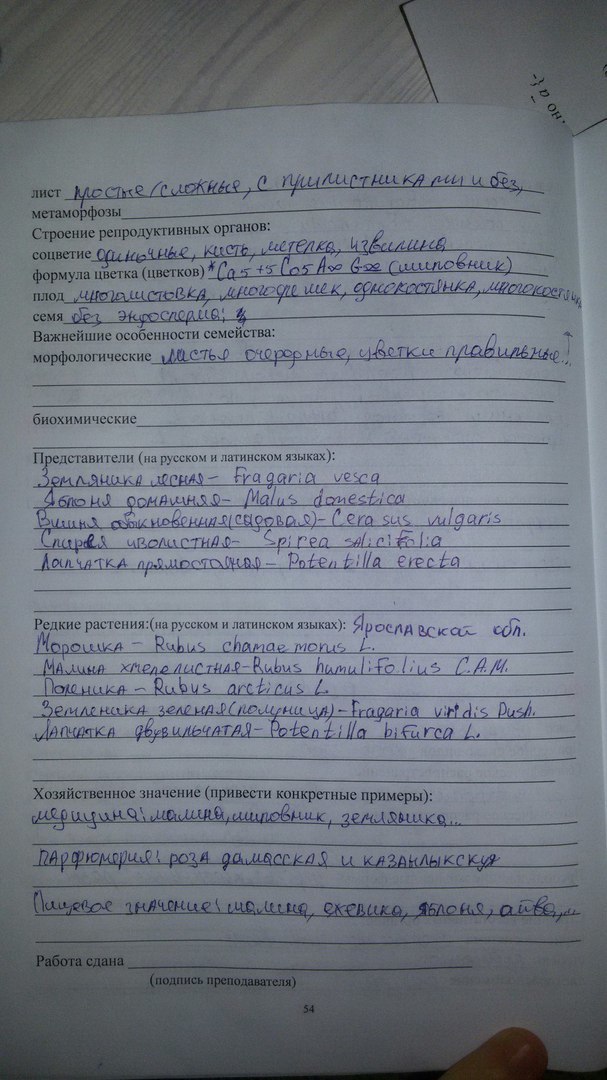 лист простые/сложные, с прилистниками и без,
метаморфозы
Строение репродуктивных органов:
соцветие одиночные, кисть, метелка, извилина
формула цветка (цветков) *Ca5+5 Co5 A∞ G∞ (шиповник)
плод многолистовка, многоорешек, однокостянка, многокостянка
семя без эндосперма;
Важнейшие особенности семейства:
морфологические листья очередные, цветки правильные...
биохимические
Представители (на русском и латинском языках):
Земляника лесная - Fragaria vesca
Яблоня домашняя - Malus domestica
Вишня обыкновенная (садовая) - Cerasus vulgaris
Спирея иволистная - Spirea salicifolia
Лапчатка прямостоячая - Potentilla erecta
Редкие растения:(на русском и латинском языках): Ярославской обл.
Морошка - Rubus chamaemorus L.
Малина хмелелистная - Rubus humulifolius C.A.M.
Поленика - Rubus arcticus L.
Земленика зеленая (полуница) - Fragaria viridis Dush.
Лапчатка двувильчатая - Potentilla bifurca L.
Хозяйственное значение (привести конкретные примеры):
медицина: малина, шиповник, земляника...
парфюмерия: роза дамасская и казанлыкская
Пищевое значение: малина, ежевика, яблоня, айва,...
Работа сдана
(подпись преподавателя)
54